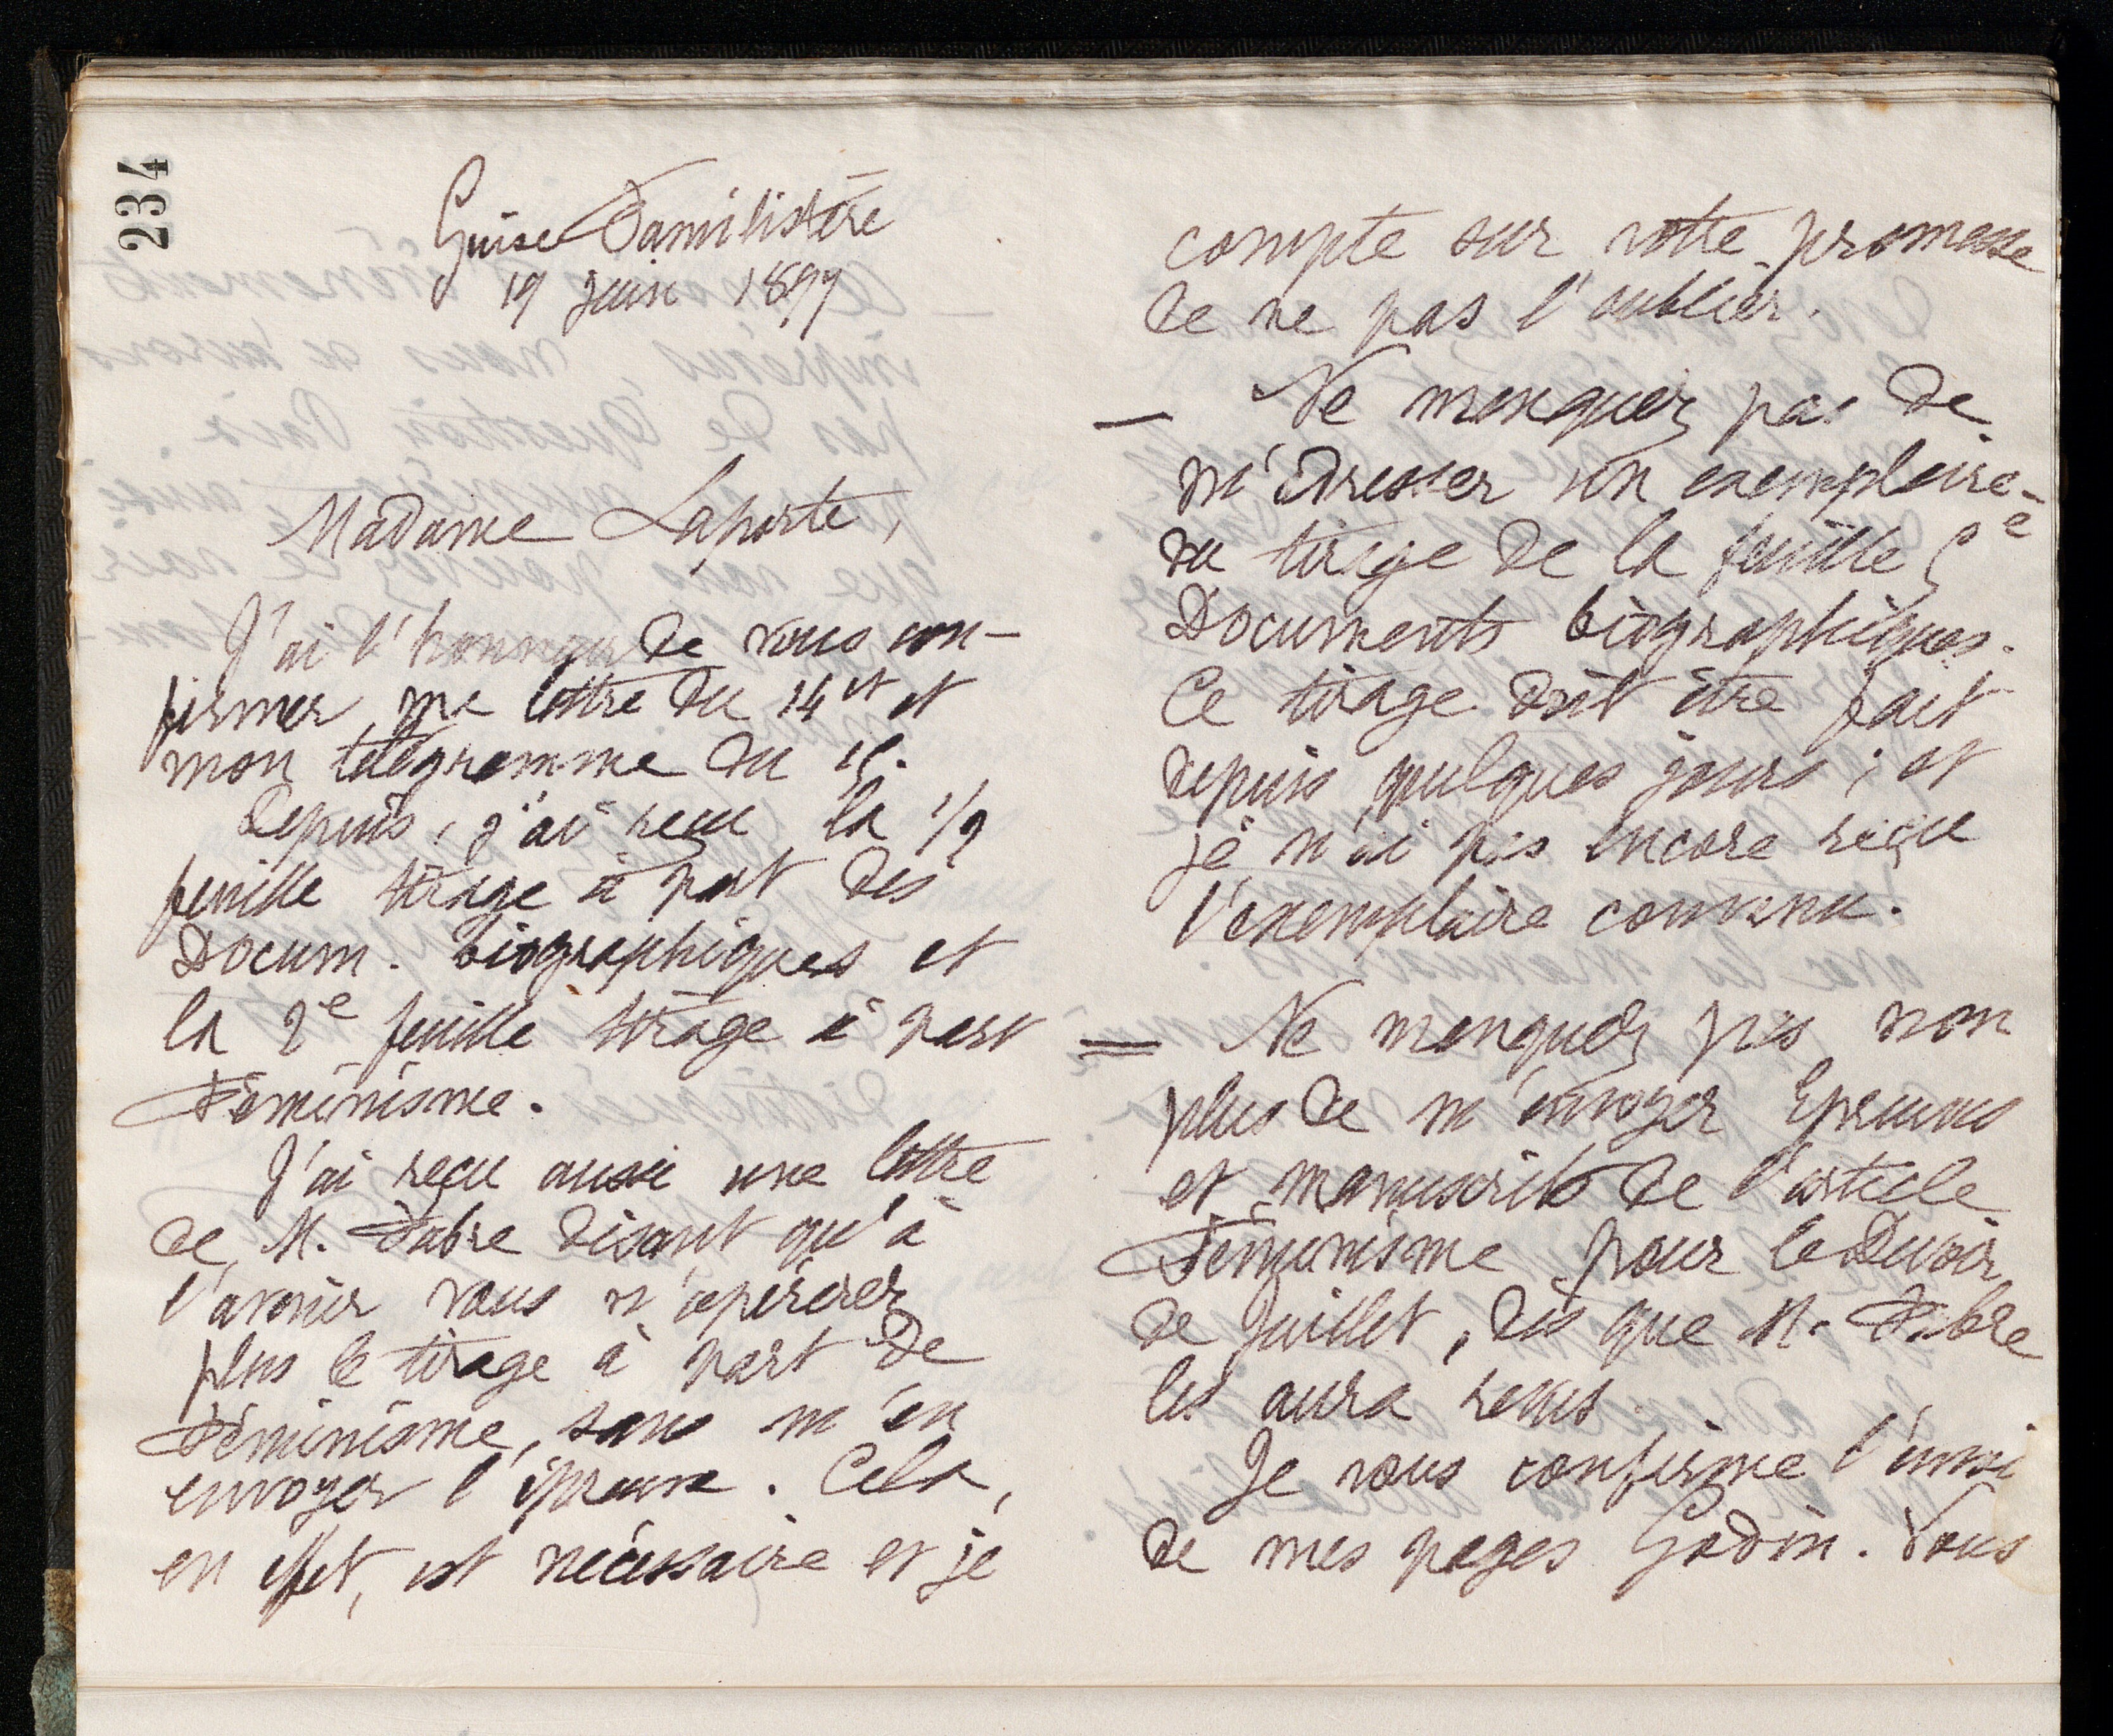 234
Guise Familistère
19 Juin 1897
Madame Laporte,
J'ai l'honneur de vous con-
firmer ma lettre du 14 ct et
mon télégramme du 15.
Depuis, j'ai reçu la 1/2
feuille tirage à part des
Docum. biographiques et
la 2e feuille tirage à part
Féminisme.
J'ai reçu aussi une lettre
de M. Fabre disant qu'à
l'avenir vous n'opérerez
plus le tirage à part de
Féminisme, sans m'en
envoyer l'épreuve. Cela,
en effet, est nécessaire et je
compte sur votre promesse
de ne pas l'oublier.
— Ne manquez pas de
m'adresser un exemplaire
du tirage de la feuille 5e
Documents biographiques.
Ce tirage doit être fait
depuis quelques jours ; et
je n'ai pas encore reçu
l'exemplaire convenu.
= Ne manquez pas non
plus de m'envoyer Epreuves
et manuscrits de l'article
Féminisme pour le Devoir
de Juillet, dès que M. Fabre
les aura revus.
Je vous confirme l'envoi
de mes pages Godin. Vous